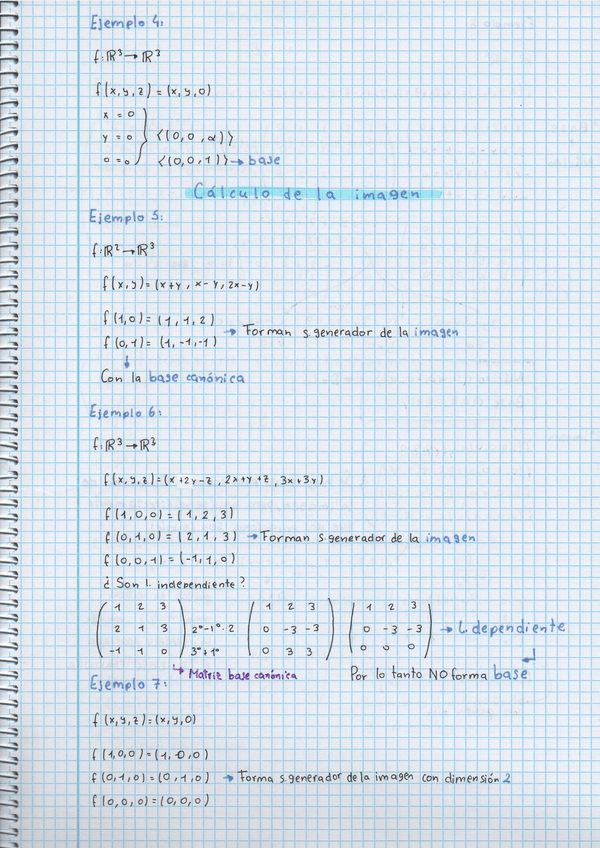 Ejemplo 4:
f: ℝ³ → ℝ³
f(x,y,z) = (x,y,0)
x = 0
y = 0 } <(0,0,α)>
0 = 0 <(0,0,1)> → base
Cálculo de la imagen
Ejemplo 5:
f: ℝ² → ℝ³
f(x,y) = (x+y, x-y, 2x-y)
f(1,0) = (1,1,2)
→ Forman s. generador de la imagen
f(0,1) = (1,-1,-1)
↓
Con la base canónica
Ejemplo 6:
f: ℝ³ → ℝ³
f(x,y,z) = (x+2y-z, 2x+y+z, 3x+3y)
f(1,0,0) = (1,2,3)
f(0,1,0) = (2,1,3) → Forman s. generador de la imagen
f(0,0,1) = (-1,1,0)
¿Son l. independiente?
1 2 3   1 2 3   1 2 3
2 1 3 2º-1º·2 0 -3 -3   0 -3 -3 → L. dependiente
-1 1 0 3º+1º 0 3 3   0 0 0
↳ Matriz base canónica   Por lo tanto NO forma base
Ejemplo 7:
f(x,y,z) = (x,y,0)
f(1,0,0) = (1,0,0)
f(0,1,0) = (0,1,0) → Forma s. generador de la imagen con dimensión 2
f(0,0,0) = (0,0,0)